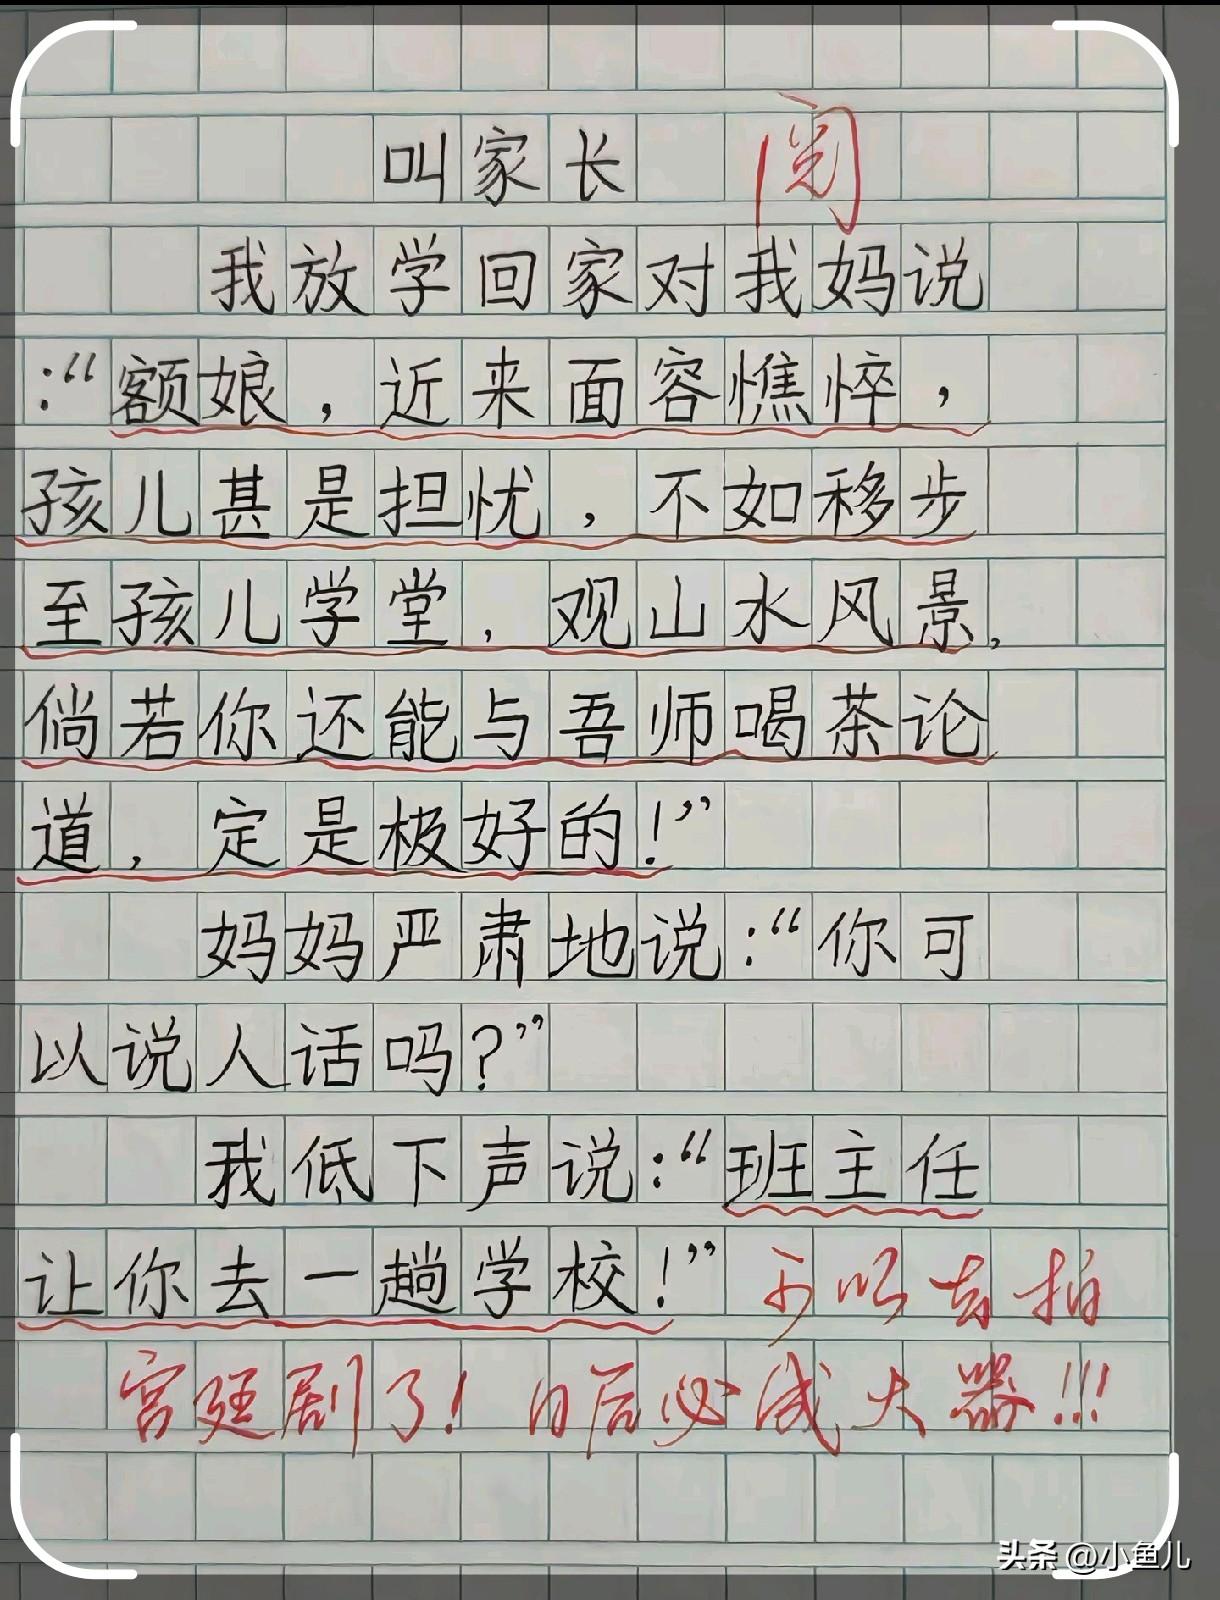 叫家长 阅
我放学回家对我妈说
:“额娘，近来面容憔悴，
孩儿甚是担忧，不如移步
至孩儿学堂，观山水风景，
倘若你还能与吾师喝茶论
道，定是极好的!”
妈妈严肃地说:“你可
以说人话吗?”
我低下声说:“班主任
让你去一趟学校!” 可以去拍
宫廷剧了! 日后必成大器!!!
头条 @小鱼儿